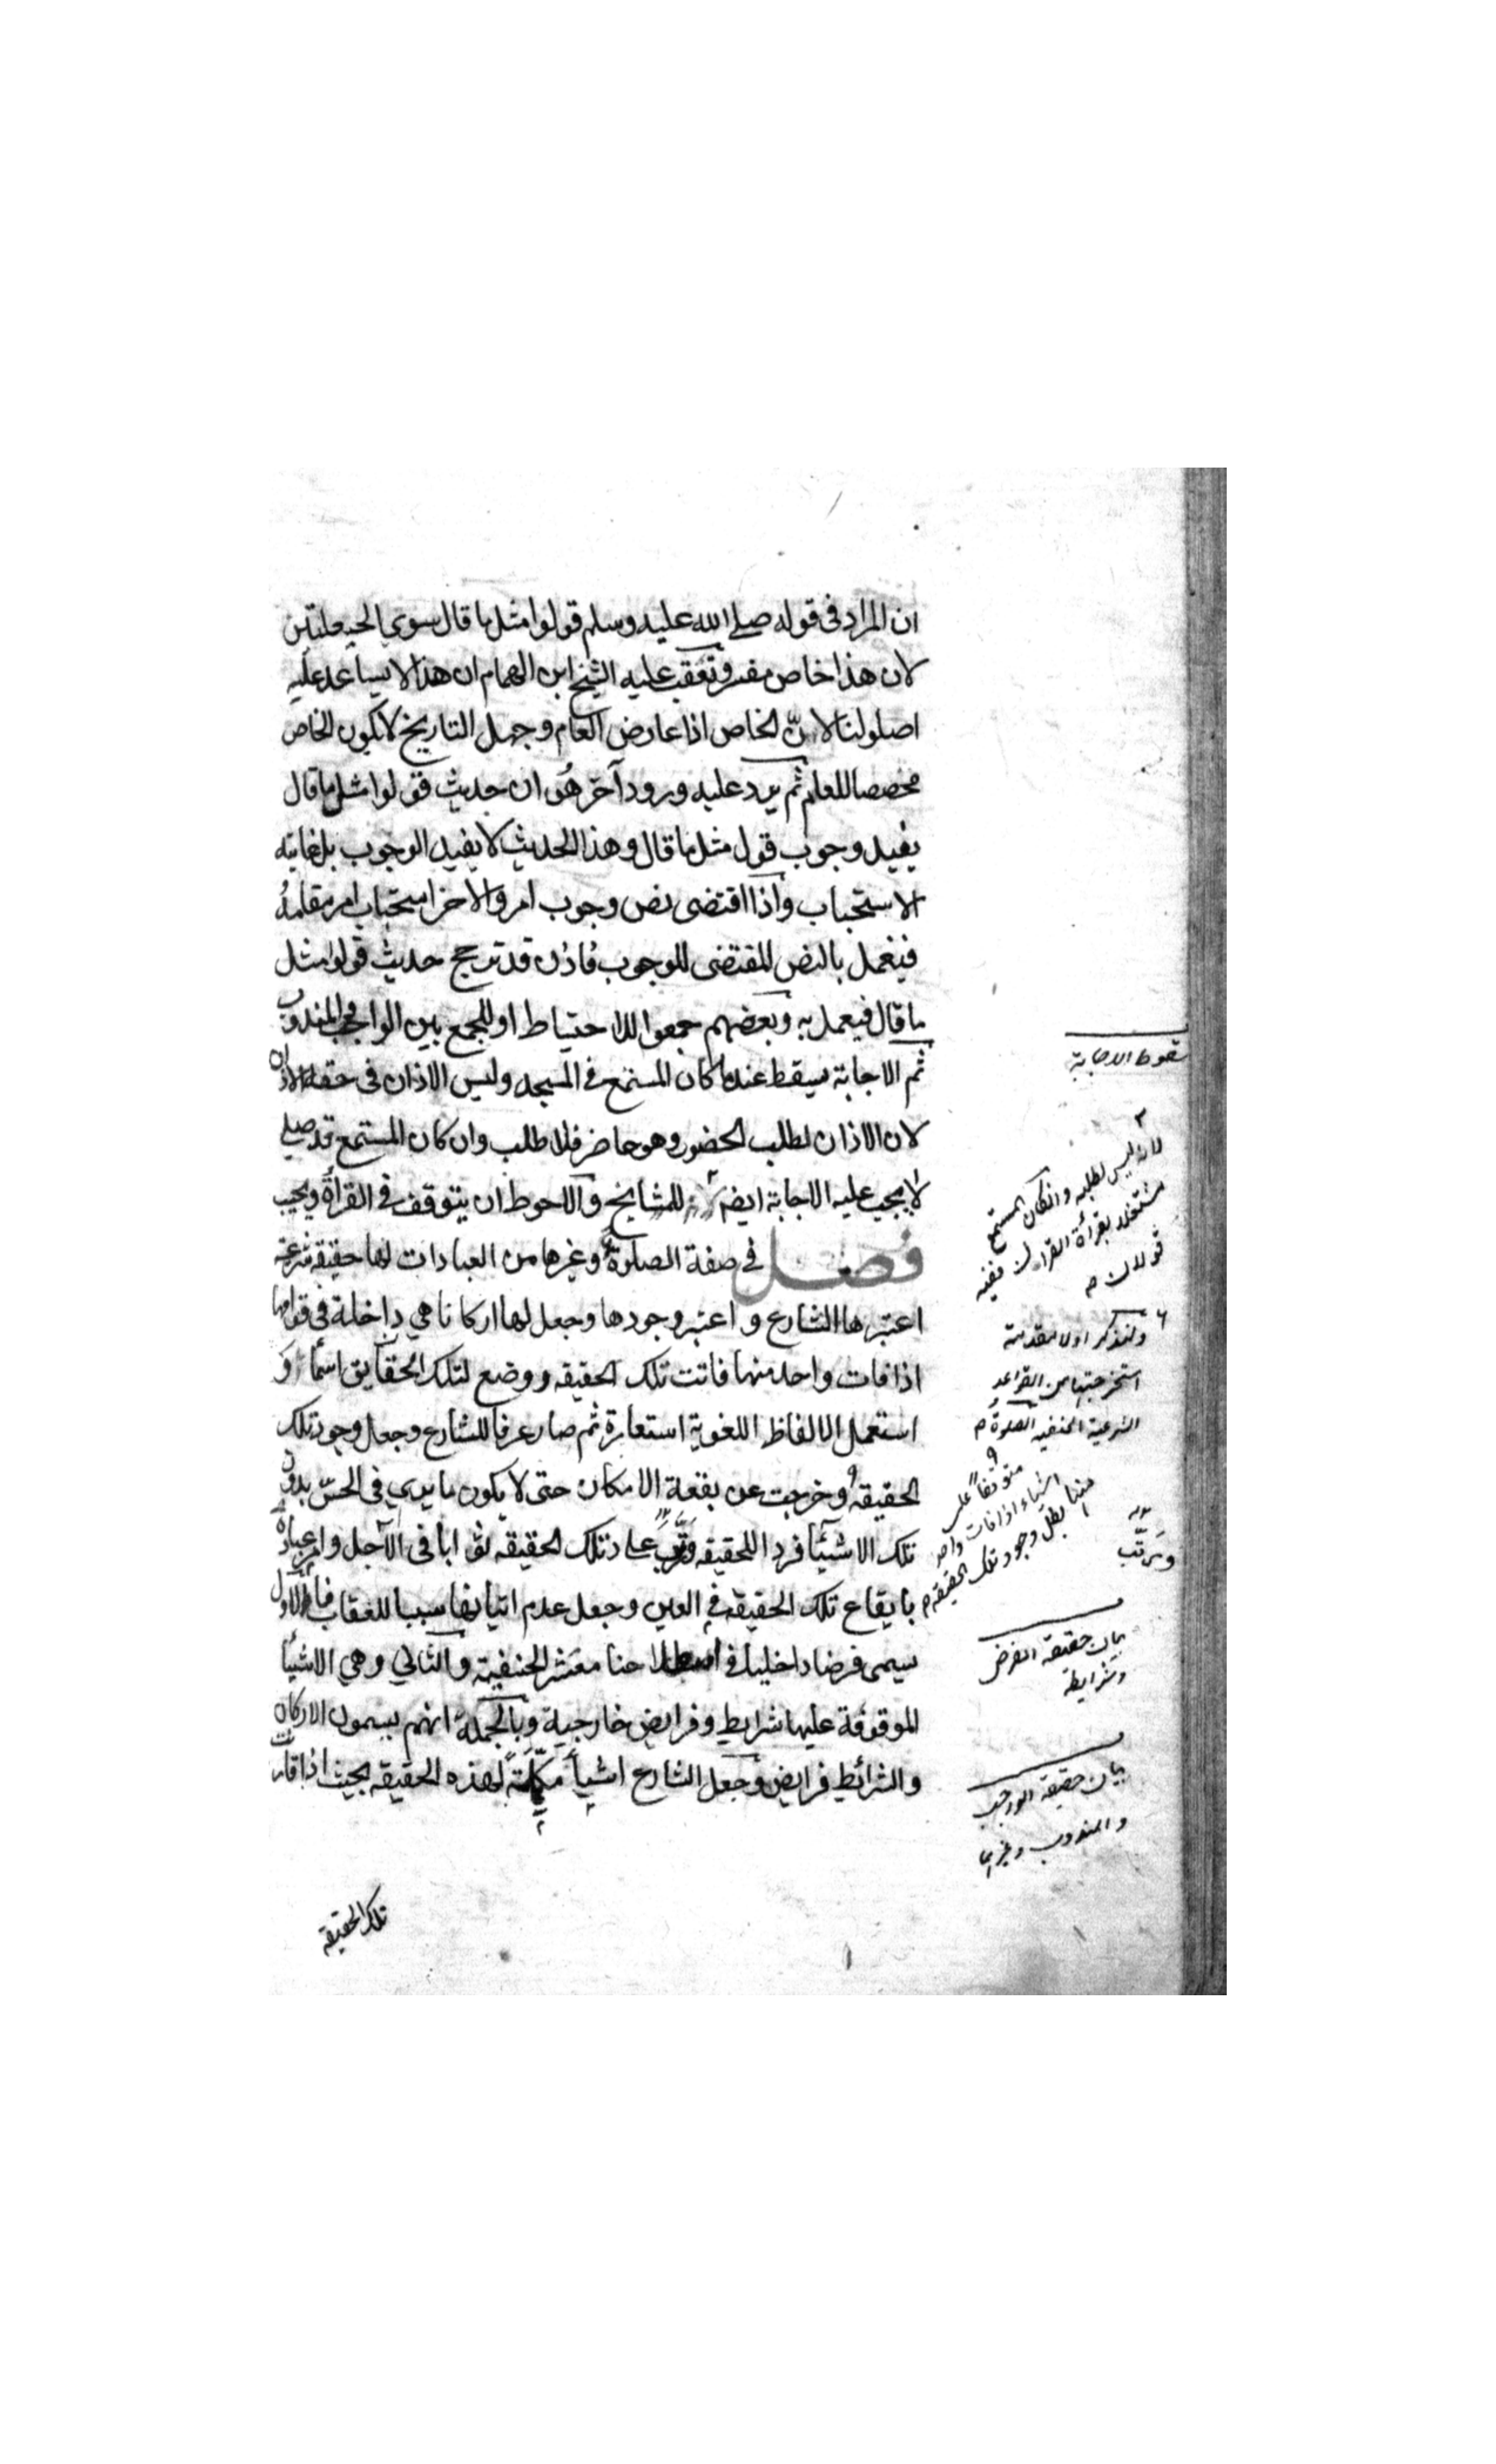 ان المراد فى قوله صلى الله عليه وسلم قولوا مثل ما قال سوى الحيعلتين
لان هذا خاص مفسر وتعقب عليه الشيخ ابن الهمام ان هذا لا يساعد عليه
اصولنا لانّ الخاص اذا عارض العام وجهل التاريخ لا يكون الخاص
مخصصا للعام ثم يرد عليه ورود آخر هو ان حديث قولوا مثل ما قال
يفيد وجوب قول مثل ما قال وهذا الحديث لا يفيد الوجوب بل غايته
الاستحباب واذا اقتضى نص وجوب امر والاخر استحباب امر مقامه
فيعمل بالنص المقتضى للوجوب فاذن قد ترجح حديث قولوا مثل
ما قال فيعمل به وبعضهم جمعوا للاحتياط او للجمع بين الواجب والمندوب
ثم الاجابة يسقط عندما كان المستمع فى المسجد وليس الاذان فى حقه الاذان
لان الاذان لطلب الحضور وهو حاضر فلا طلب وان كان المستمع قد صلى
لا يجب عليه الاجابة ايضا للمشايخ والاحوط ان يتوقف فى القراءة ويجيب
فصل فى صفة الصلوة وغيرها من العبادات لها حقيقة شرعية
اعتبرها الشارع واعتبر وجودها وجعل لها اركانا هى داخلة فى قوامها
اذا فات واحد منها فاتت تلك الحقيقه ووضع لتلك الحقايق اسماء و
استعمل الالفاظ اللغوية استعارة ثم صار عرفا للشارع وجعل وجود تلك
الحقيقه وخرجت عن بقعة الامكان حتى لا يكون ما يدي فى الحسّ بدون
تلك الاشيأ فردا للحقيقه وترتب على تلك الحقيقه ثوابا فى الآجل وامر عباده
بايقاع تلك الحقيقه فى العين وجعل عدم اتيانها سببا للعقاب فالاول
يسمى فرضا داخليا فى اصطلاحنا معشر الحنفية والثانى وهى الاشيأ
الموقوفة عليها شرايط وفرايض خارجية وبالجملة انهم يسمون الاركان
والشرائط فرايض وجعل الشارع اشيأ مكملة لهذه الحقيقه بحيث اذا فات
تلك الحقيقه
سقوط الاجابة
لانه ليس لطلبه وان كان المستمع
مشتغلا بقرأة القرآن ففيه
قولان م
ولنذكر اولا مقدمة
استخرجتها من القواعد
الشرعية الحنفيه الصلوة م
متوقفاً على
اشياء اذا فات واحد
منها بطل وجود تلك الحقيقه م
ويرتّب
بيان حقيقة الفرض
وشرايطه
بيان حقيقة الواجب
والمندوب وغيرهما